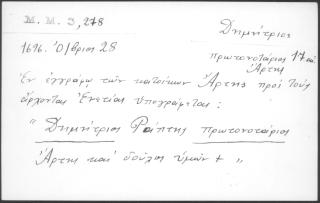 Μ. Μ. 3, 278
Δημήτριος
1696. Ὀ/βριος 28
πρωτονοτάριος 17 αἰ.
Ἄρτης
Ἐν ἐγγράφῳ τῶν κατοίκων Ἄρτης πρὸς τοὺς
ἄρχοντας Ἑνετίας ὑπογράφεται:
"Δημήτριος Ράπτης πρωτονοτάριος
Ἄρτης καὶ δοῦλος ὑμῶν + "